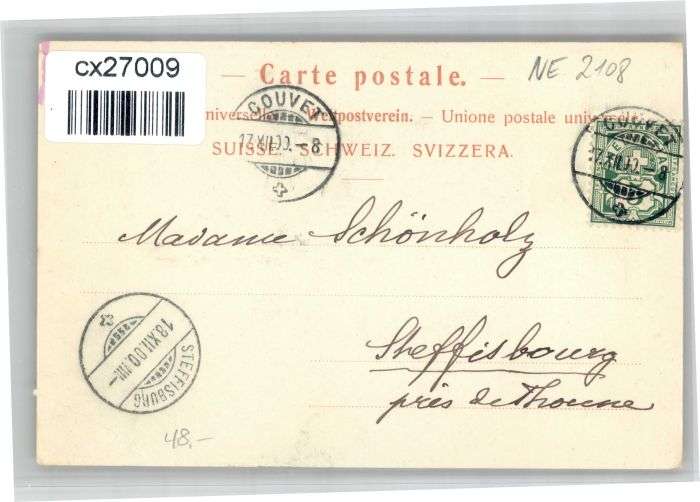 cx27009
NE 2108
— Carte postale. —
niverselle. — Weltpostverein. — Unione postale universale.
SUISSE. SCHWEIZ. SVIZZERA.
COUVET
17.XII.00.–8
COUVET
17.XII.00.–8
Madame Schönholz
Steffisbourg
près de Thoune
18.XII.00.VIII–
STEFFISBURG
48.-